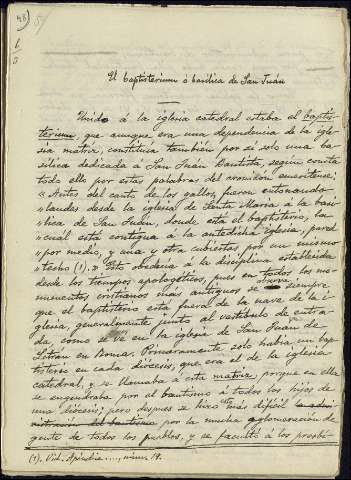 48)
6/3
El baptisterium ó basílica de San Juán
Unido á la iglesia catedral estaba el baptis-
terium, que aunque era una dependencia de la igle-
sia matriz, constituía también por sí solo una ba-
sílica dedicada á San Juán Bautista, según consta
todo ello por estas palabras del cronicón emeritense:
«Antes del canto de los gallos, fueron entonando
»laudes desde la iglesia de Santa María á la basí-
»lica de San Juán, donde está el baptisterio, la
»cuál está contigua á la antedicha iglesia, pared
»por medio, y una y otra cubiertas por un mismo
»techo (1).» Esto obedecía á la disciplina establecida
desde los tiempos apologéticos, pues en todos los mo-
numentos cristianos más antiguos se observa siempre
que el baptisterio está fuera de la nave de la i-
glesia, generalmente junto al vestíbulo de entra-
da, como se ve en la iglesia de San Juan de
Letran en Roma. Primeramente solo había un bap-
tisterio en cada diócesis, que era el de la iglesia
catedral, y se llamaba á esta matriz, porque en ella
se engendraba por el bautismo á todos los hijos de
una diócesis; pero despues se hizo esto más difícil la admi-
nistración del bautismo por la mucha aglomeración de
gente de todos los pueblos, y se facultó á los presbí-
(1). Vid. Apéndice ...., núm. 19.